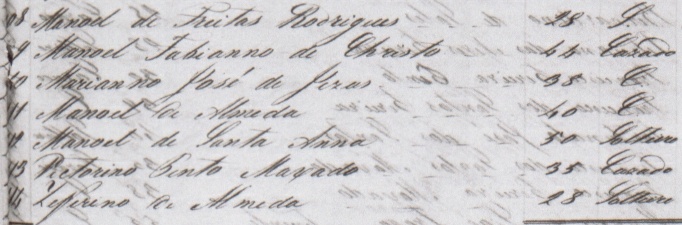 08 Manoel de Freitas Rodrigues 28 S.
9 Manoel Fabianno de Christo 44 Cazado
10 Marianno José de Jezus 38 C
11 Manoel de Almeda 40 C
12 Manoel de Santa Anna 50 Solteiro
13 Bento Maxado 35 Cazado
14 Zeferino de Almeda 28 Solteiro